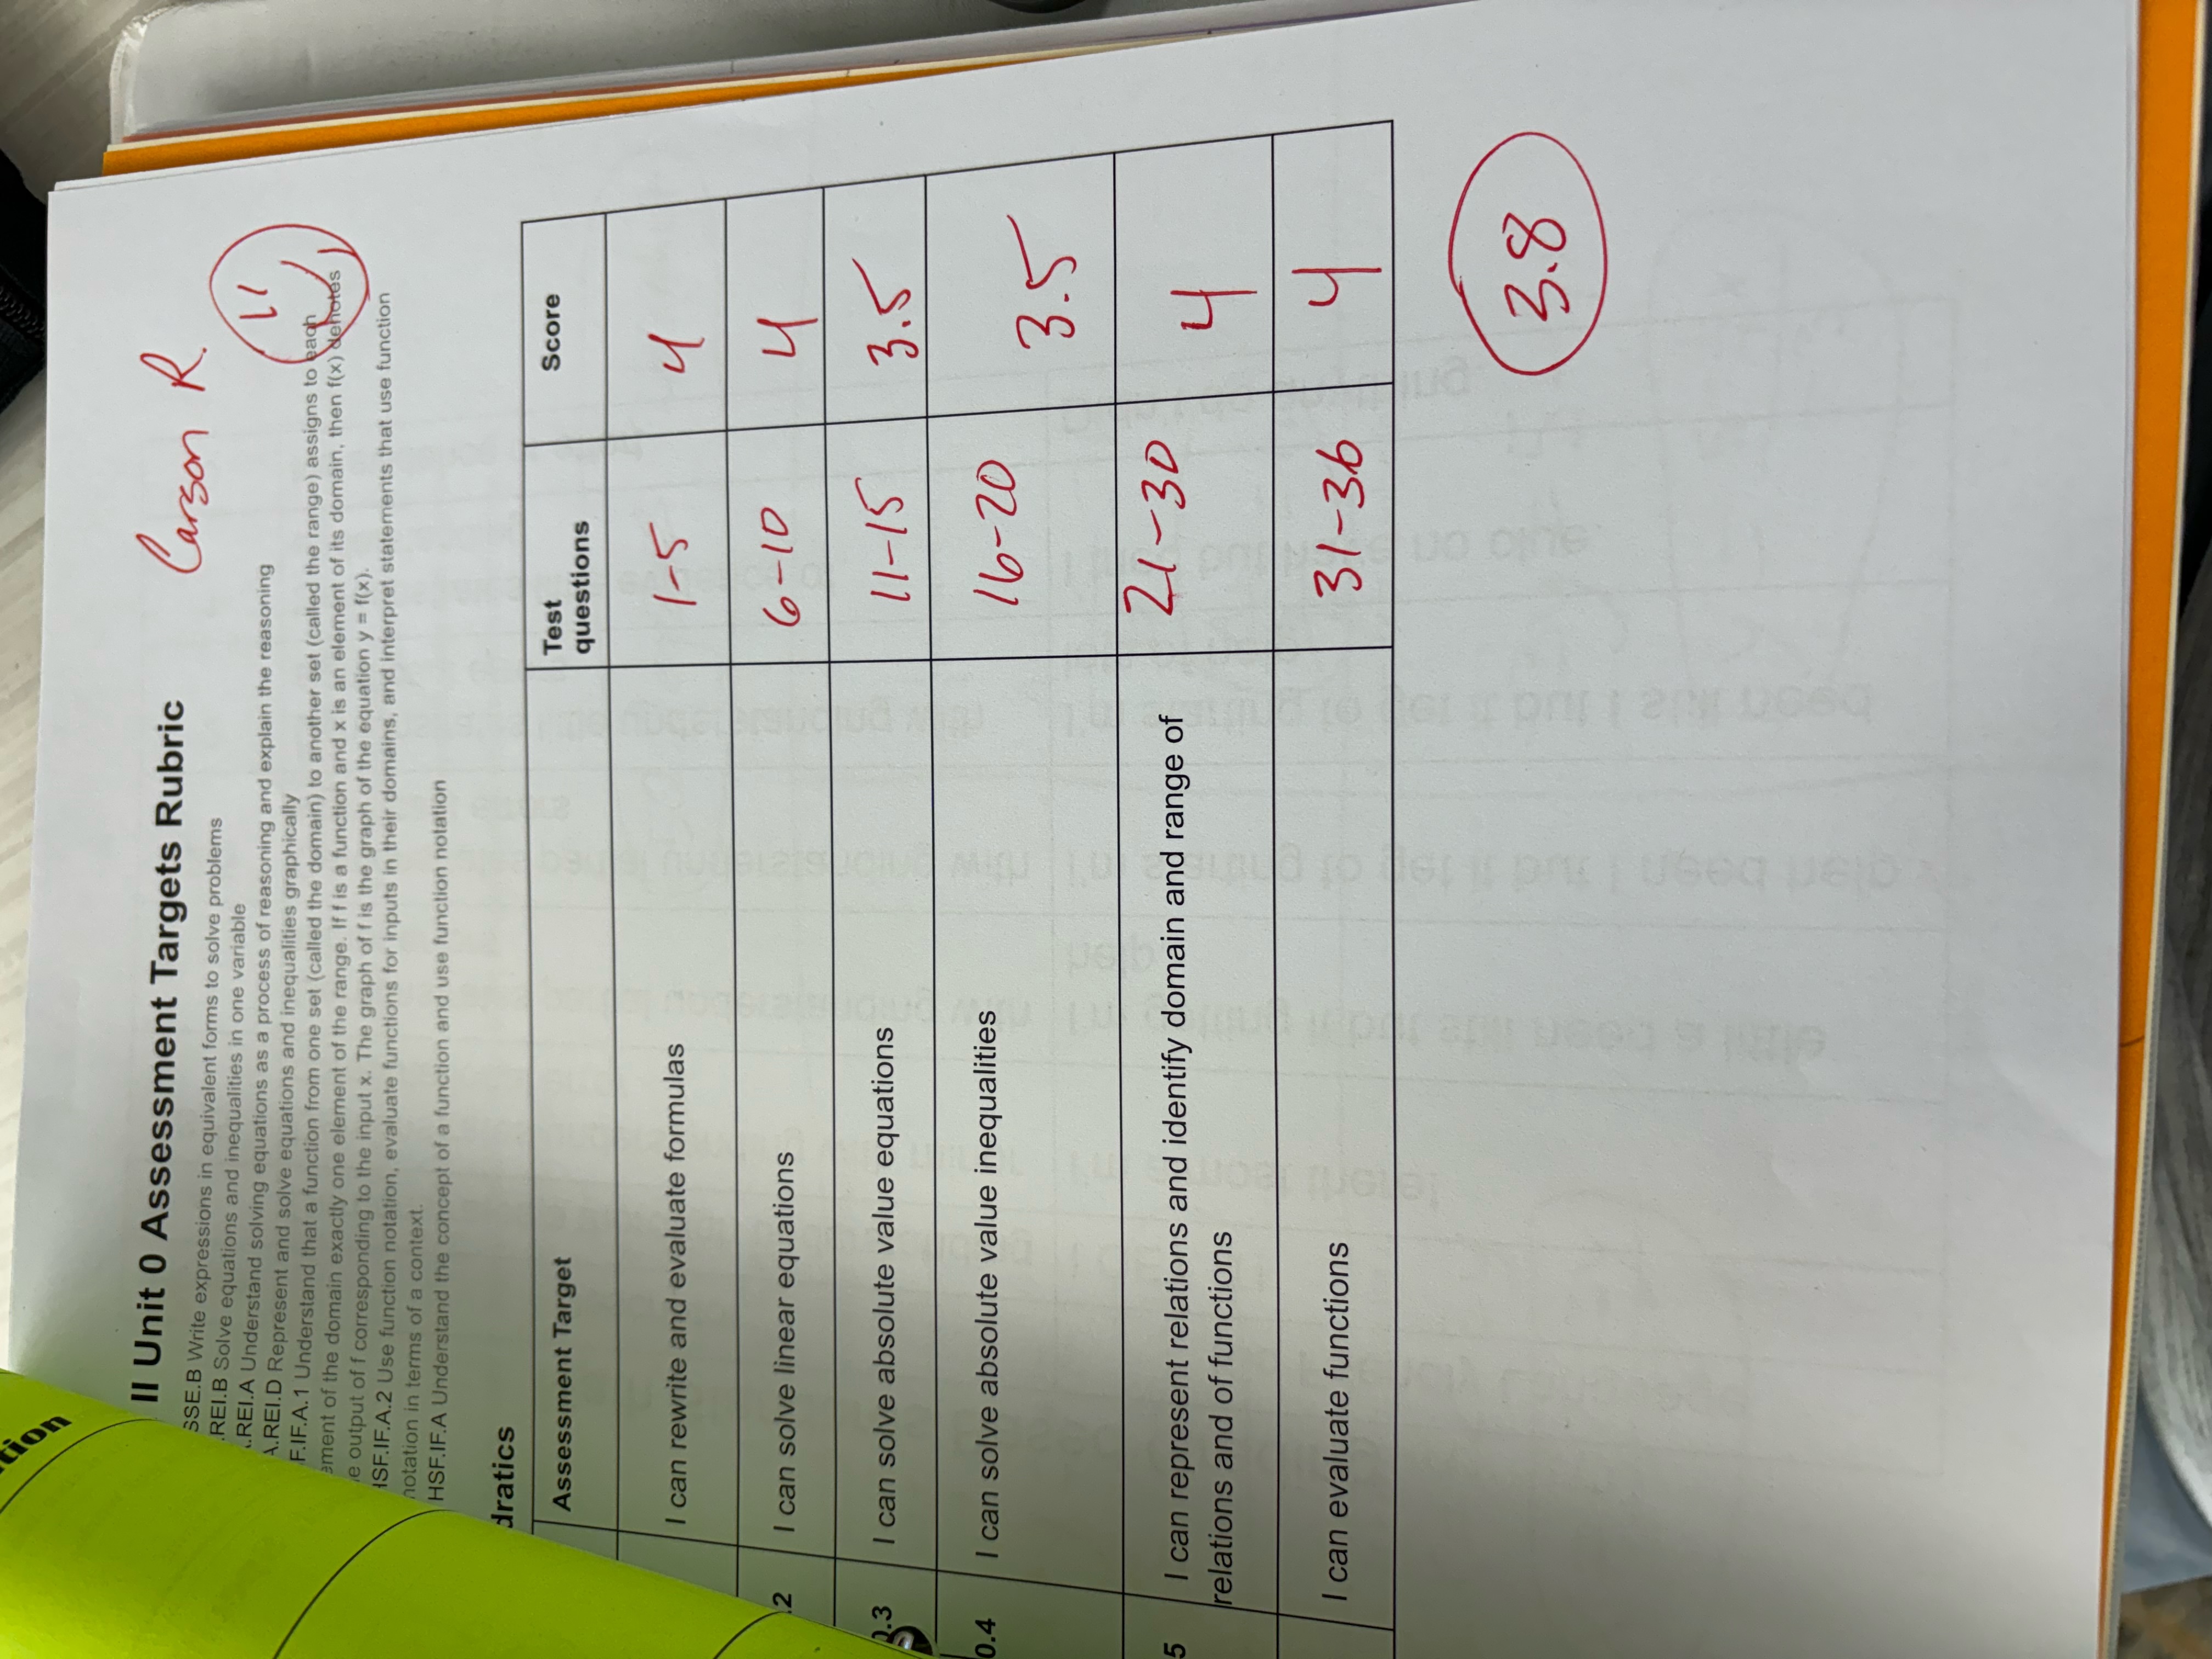 tion
II Unit 0 Assessment Targets Rubric
Carson R.
SSE.B Write expressions in equivalent forms to solve problems
.REI.B Solve equations and inequalities in one variable
.REI.A Understand solving equations as a process of reasoning and explain the reasoning
A.REI.D Represent and solve equations and inequalities graphically
F.IF.A.1 Understand that a function from one set (called the domain) to another set (called the range) assigns to each
ement of the domain exactly one element of the range. If f is a function and x is an element of its domain, then f(x) denotes
e output of f corresponding to the input x. The graph of f is the graph of the equation y = f(x).
HSF.IF.A.2 Use function notation, evaluate functions for inputs in their domains, and interpret statements that use function
notation in terms of a context.
HSF.IF.A Understand the concept of a function and use function notation
dratics
Assessment Target Test questions Score
I can rewrite and evaluate formulas 1-5 4
.2 I can solve linear equations 6-10 4
0.3 I can solve absolute value equations 11-15 3.5
0.4 I can solve absolute value inequalities 16-20 3.5
5 I can represent relations and identify domain and range of 21-30 4
relations and of functions
I can evaluate functions 31-36 4
3.8